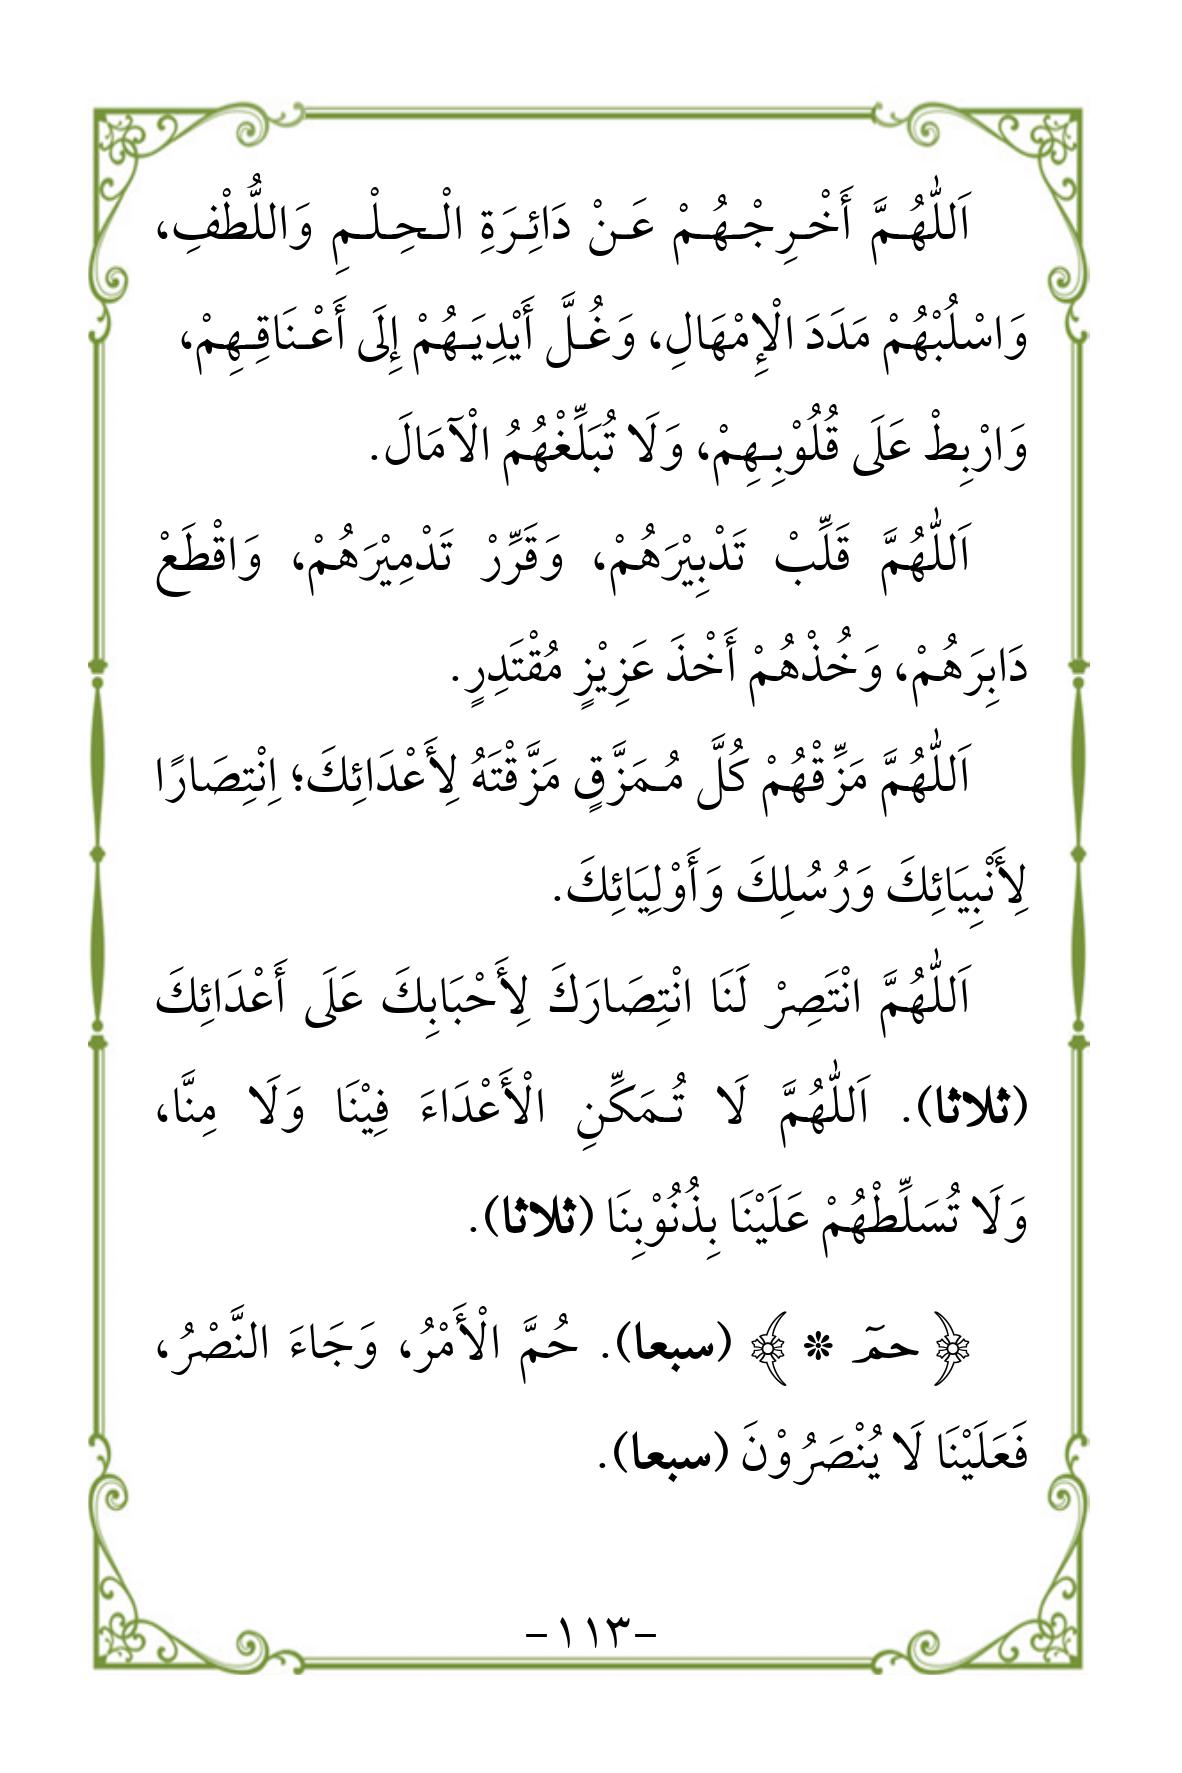 اَللّٰهُمَّ أَخْرِجْهُمْ عَنْ دَائِرَةِ الْحِلْمِ وَاللُّطْفِ،
وَاسْلُبْهُمْ مَدَدَ الْإِمْهَالِ، وَغُلَّ أَيْدِيَهُمْ إِلَى أَعْنَاقِهِمْ،
وَارْبِطْ عَلَى قُلُوْبِهِمْ، وَلَا تُبَلِّغْهُمُ الْآمَالَ.
اَللّٰهُمَّ قَلِّبْ تَدْبِيْرَهُمْ، وَقَرِّرْ تَدْمِيْرَهُمْ، وَاقْطَعْ
دَابِرَهُمْ، وَخُذْهُمْ أَخْذَ عَزِيْزٍ مُقْتَدِرٍ.
اَللّٰهُمَّ مَزِّقْهُمْ كُلَّ مُمَزَّقٍ مَزَّقْتَهُ لِأَعْدَائِكَ؛ اِنْتِصَارًا
لِأَنْبِيَائِكَ وَرُسُلِكَ وَأَوْلِيَائِكَ.
اَللّٰهُمَّ انْتَصِرْ لَنَا انْتِصَارَكَ لِأَحْبَابِكَ عَلَى أَعْدَائِكَ
(ثلاثا). اَللّٰهُمَّ لَا تُمَكِّنِ الْأَعْدَاءَ فِيْنَا وَلَا مِنَّا،
وَلَا تُسَلِّطْهُمْ عَلَيْنَا بِذُنُوْبِنَا (ثلاثا).
﴿ حمٓ * ﴾ (سبعا). حُمَّ الْأَمْرُ، وَجَاءَ النَّصْرُ،
فَعَلَيْنَا لَا يُنْصَرُوْنَ (سبعا).
-١١٣-